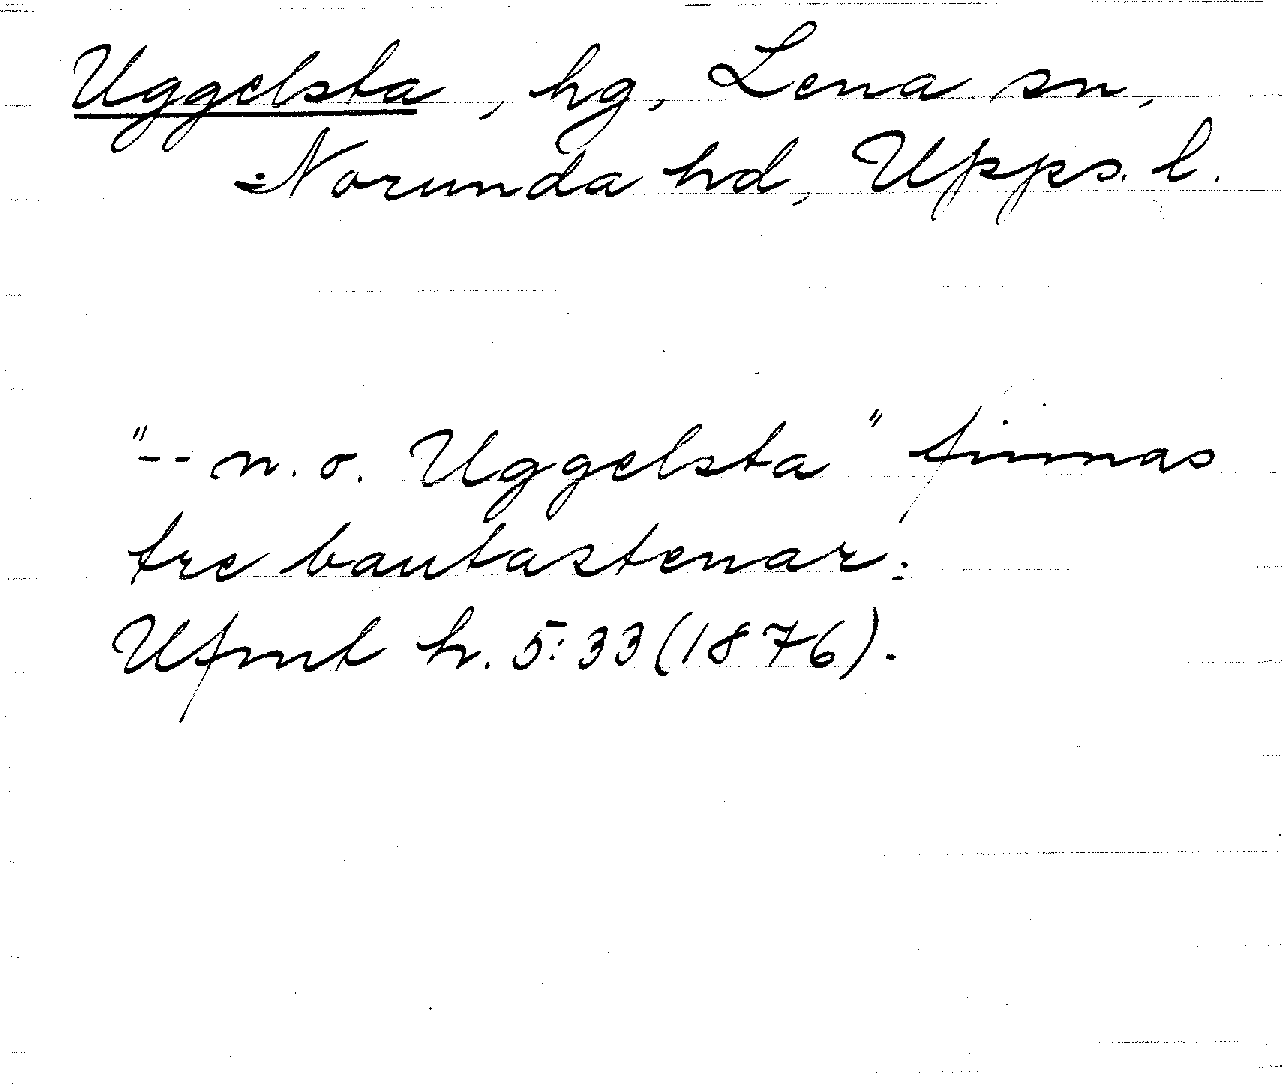 Uggelsta, hg, Lena sn,
Norunda hd, Upps. l.
"-- n. o. Uggelsta" finnas
tre bautastenar:
Ufmt h. 5:33 (1876).